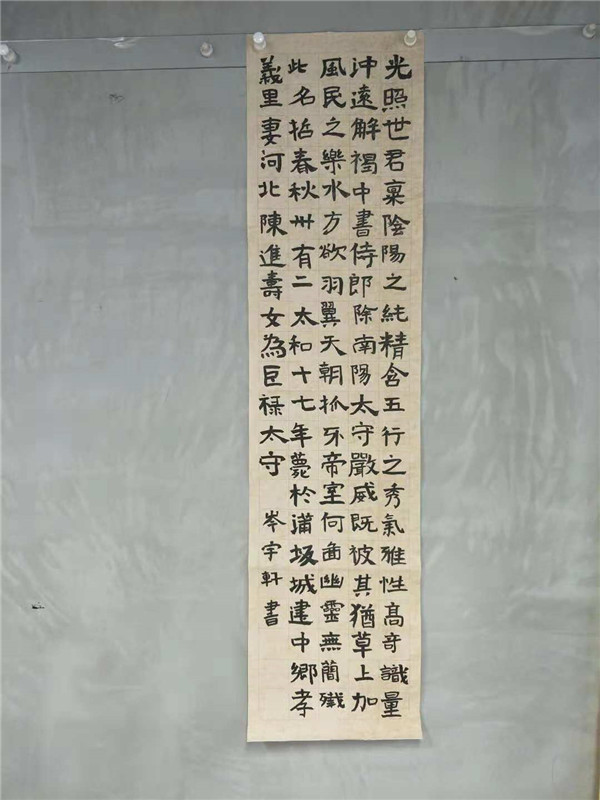 光照世君稟陰陽之純精含五行之秀氣雅性高奇識量
沖遠解褐中書侍郎除南陽太守嚴威既被其猶草上加
風民之樂水方欲羽翼天朝抓牙帝室何圖幽靈無簡殲
此名哲春秋卅有二太和十七年薨於蒲坂城建中鄉孝
義里妻河北陳進壽女為巨祿太守
岑宇軒書